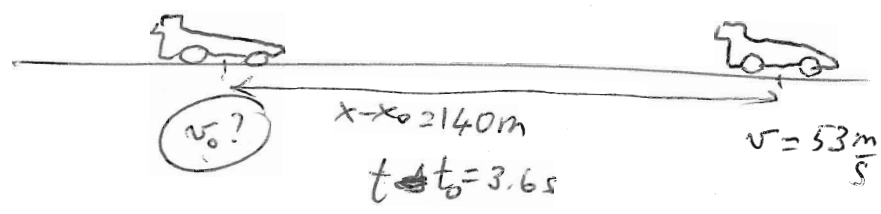 x-x₀=140m
v₀?
v=53 m/s
t-t₀=3.6s